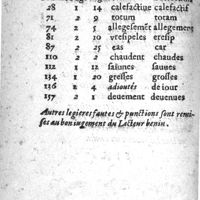 28 1 14 calefactiue calefactif
71 2 9 totum totam
74 2 5 allegesemēt allegement
81 1 2
87 2 25 eas car
110 2 2 chaudent chaudes
112 1 12 saines saues
134 1 20 gresses grosses
136 2 4 adioutés de iour
157 2 1 deuement deuenues
Autres legieres fautes & punctions sont remi-
ses au bon iugement du Lecteur benin.